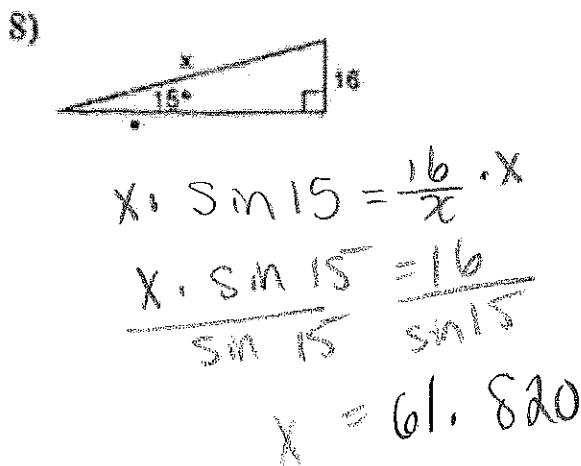 8)
x
16
15°
x · sin 15 = 16/x · x
x · sin 15 = 16
sin 15 sin 15
x = 61.820